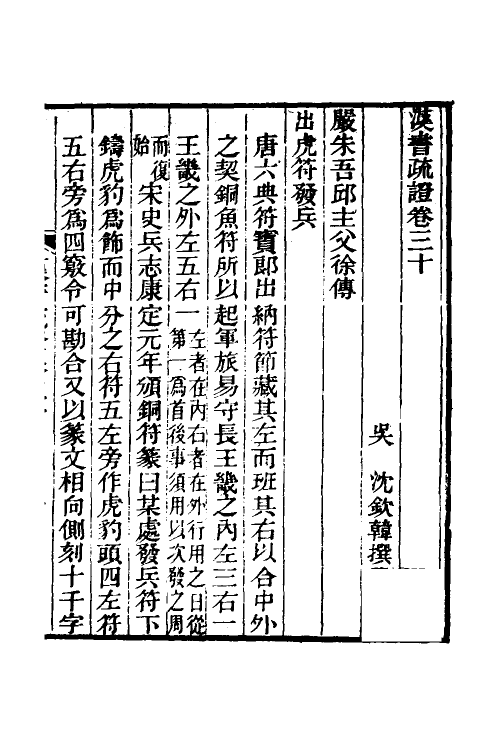 漢書疏證卷三十
吳　沈欽韓撰
嚴朱吾邱主父徐傳
出虎符發兵
唐六典符寶郎出納符節藏其左而班其右以合中外
之契銅魚符所以起軍旅易守長王畿之內左三右一
王畿之外左五右一左者在內右者在外行用之日從第一爲首後事須用以次發之周
而復始宋史兵志康定元年頒銅符篆曰某處發兵符下
鑄虎豹爲飾而中分之右符五左旁作虎豹頭四左符
五右旁爲四竅令可勘合又以篆文相向側刻十千字